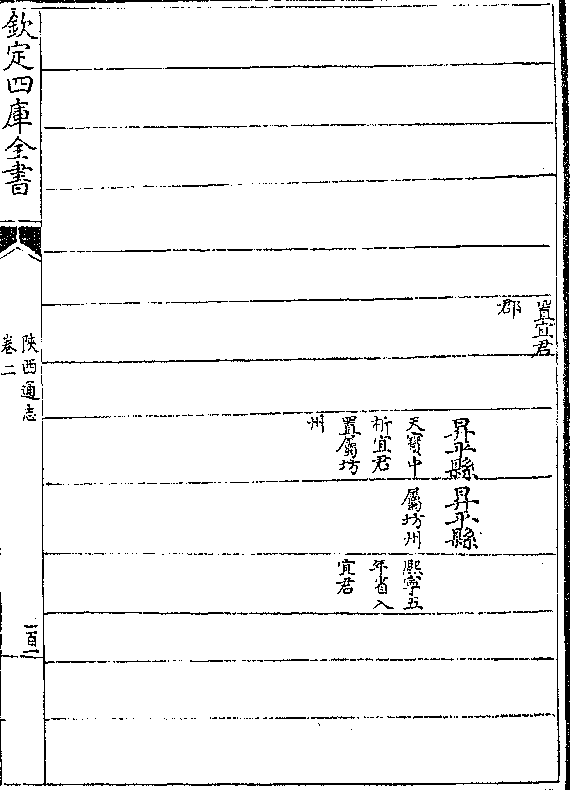 置宜君
郡
昇平縣
天寶中
析宜君
置屬坊
州
昇平縣
屬坊州
熙寧五
年省入
宜君
欽定四庫全書
陜西通志
卷二